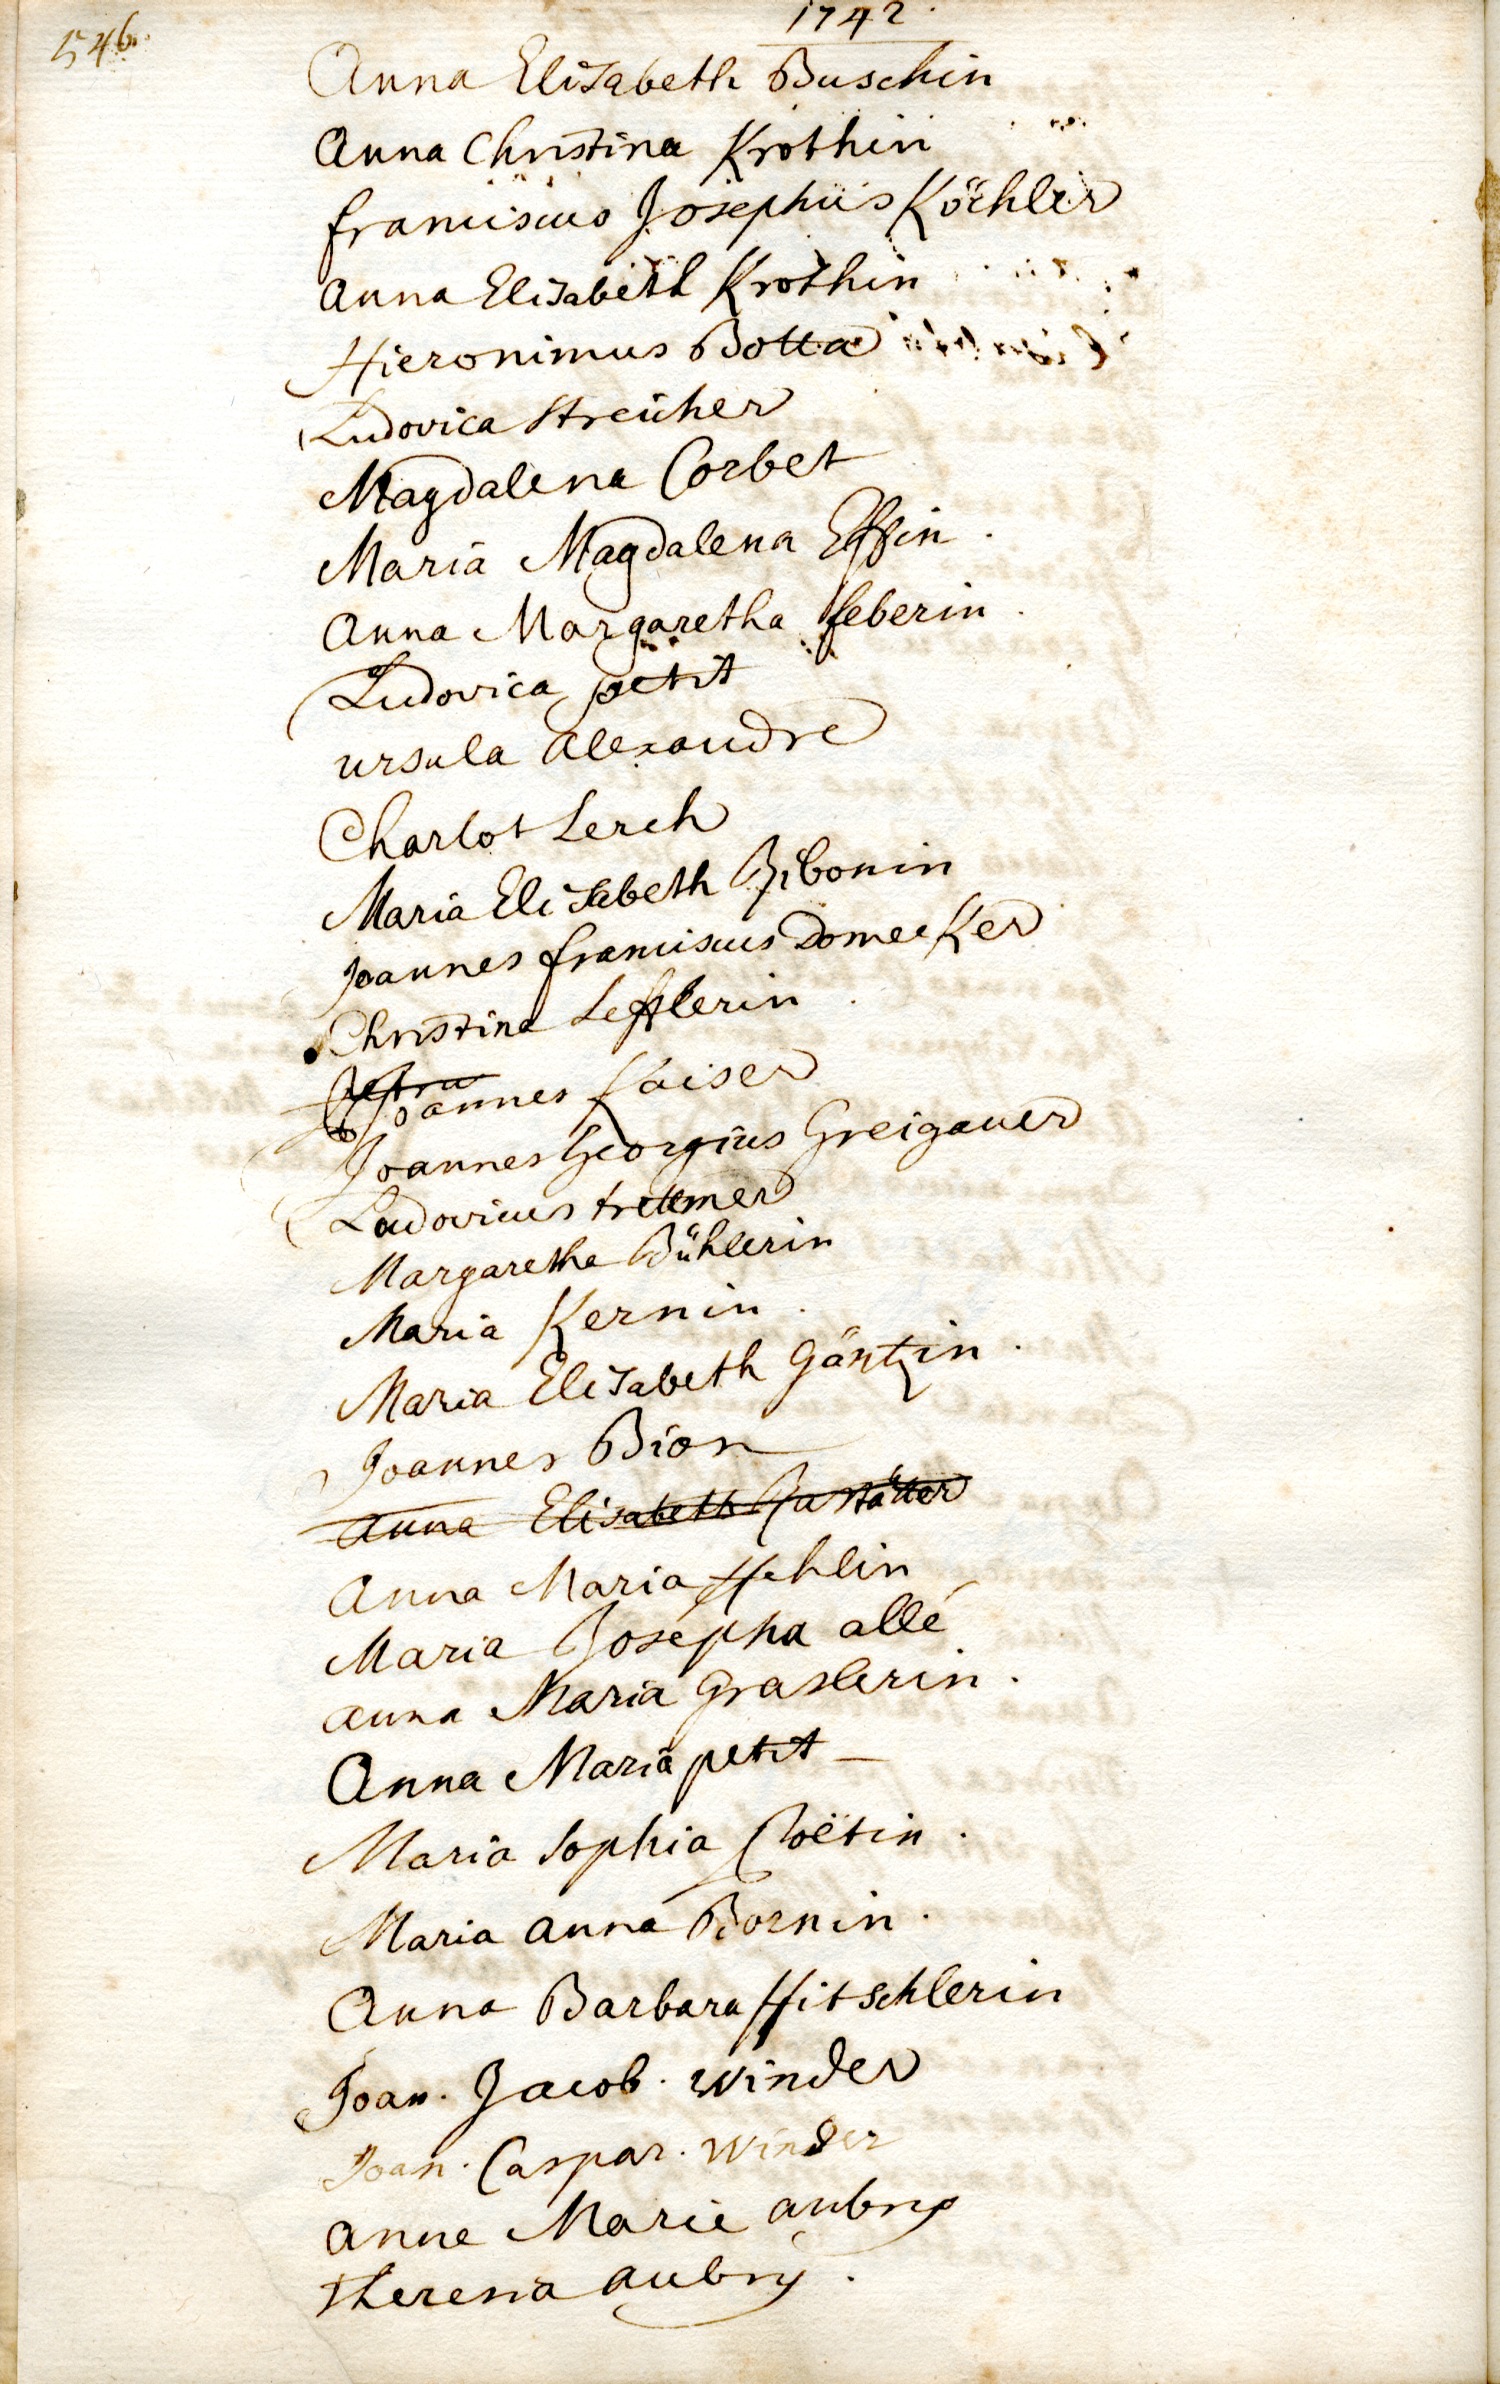 546.
1742.
Anna Elisabeth Buschin
Anna Christina Krothin
franciscus Josephus Köchler
Anna Elisabeth Krothin
Hieronimus Botta
Ludovica Streicher
Magdalena Corbet
Maria Magdalena Effin.
Anna Margaretha feberin.
Ludovica petit
ursula alexandre
Charlot Lerch
Maria Elisabeth Zibonin
Joannes franciscus Domecker
Christina Lefflerin
Joannes Kaiser
Joannes Georgius Greigauer
Ludovicus trettmer
Margaretha Bühlerin
Maria Kernin.
Maria Elisabeth Gäntzin.
Joannes Bion
Anna Elisabeth Rastätter
Anna Maria Hehlin
Maria Josepha allé
anna Maria Graslerin.
Anna Maria petit
Maria Sophia
Maria anna Bornin.
Anna Barbara Hitschlerin
Joan. Jacob. winder
Joan. Caspar. winder
anne Marie aubry
theresia aubry.